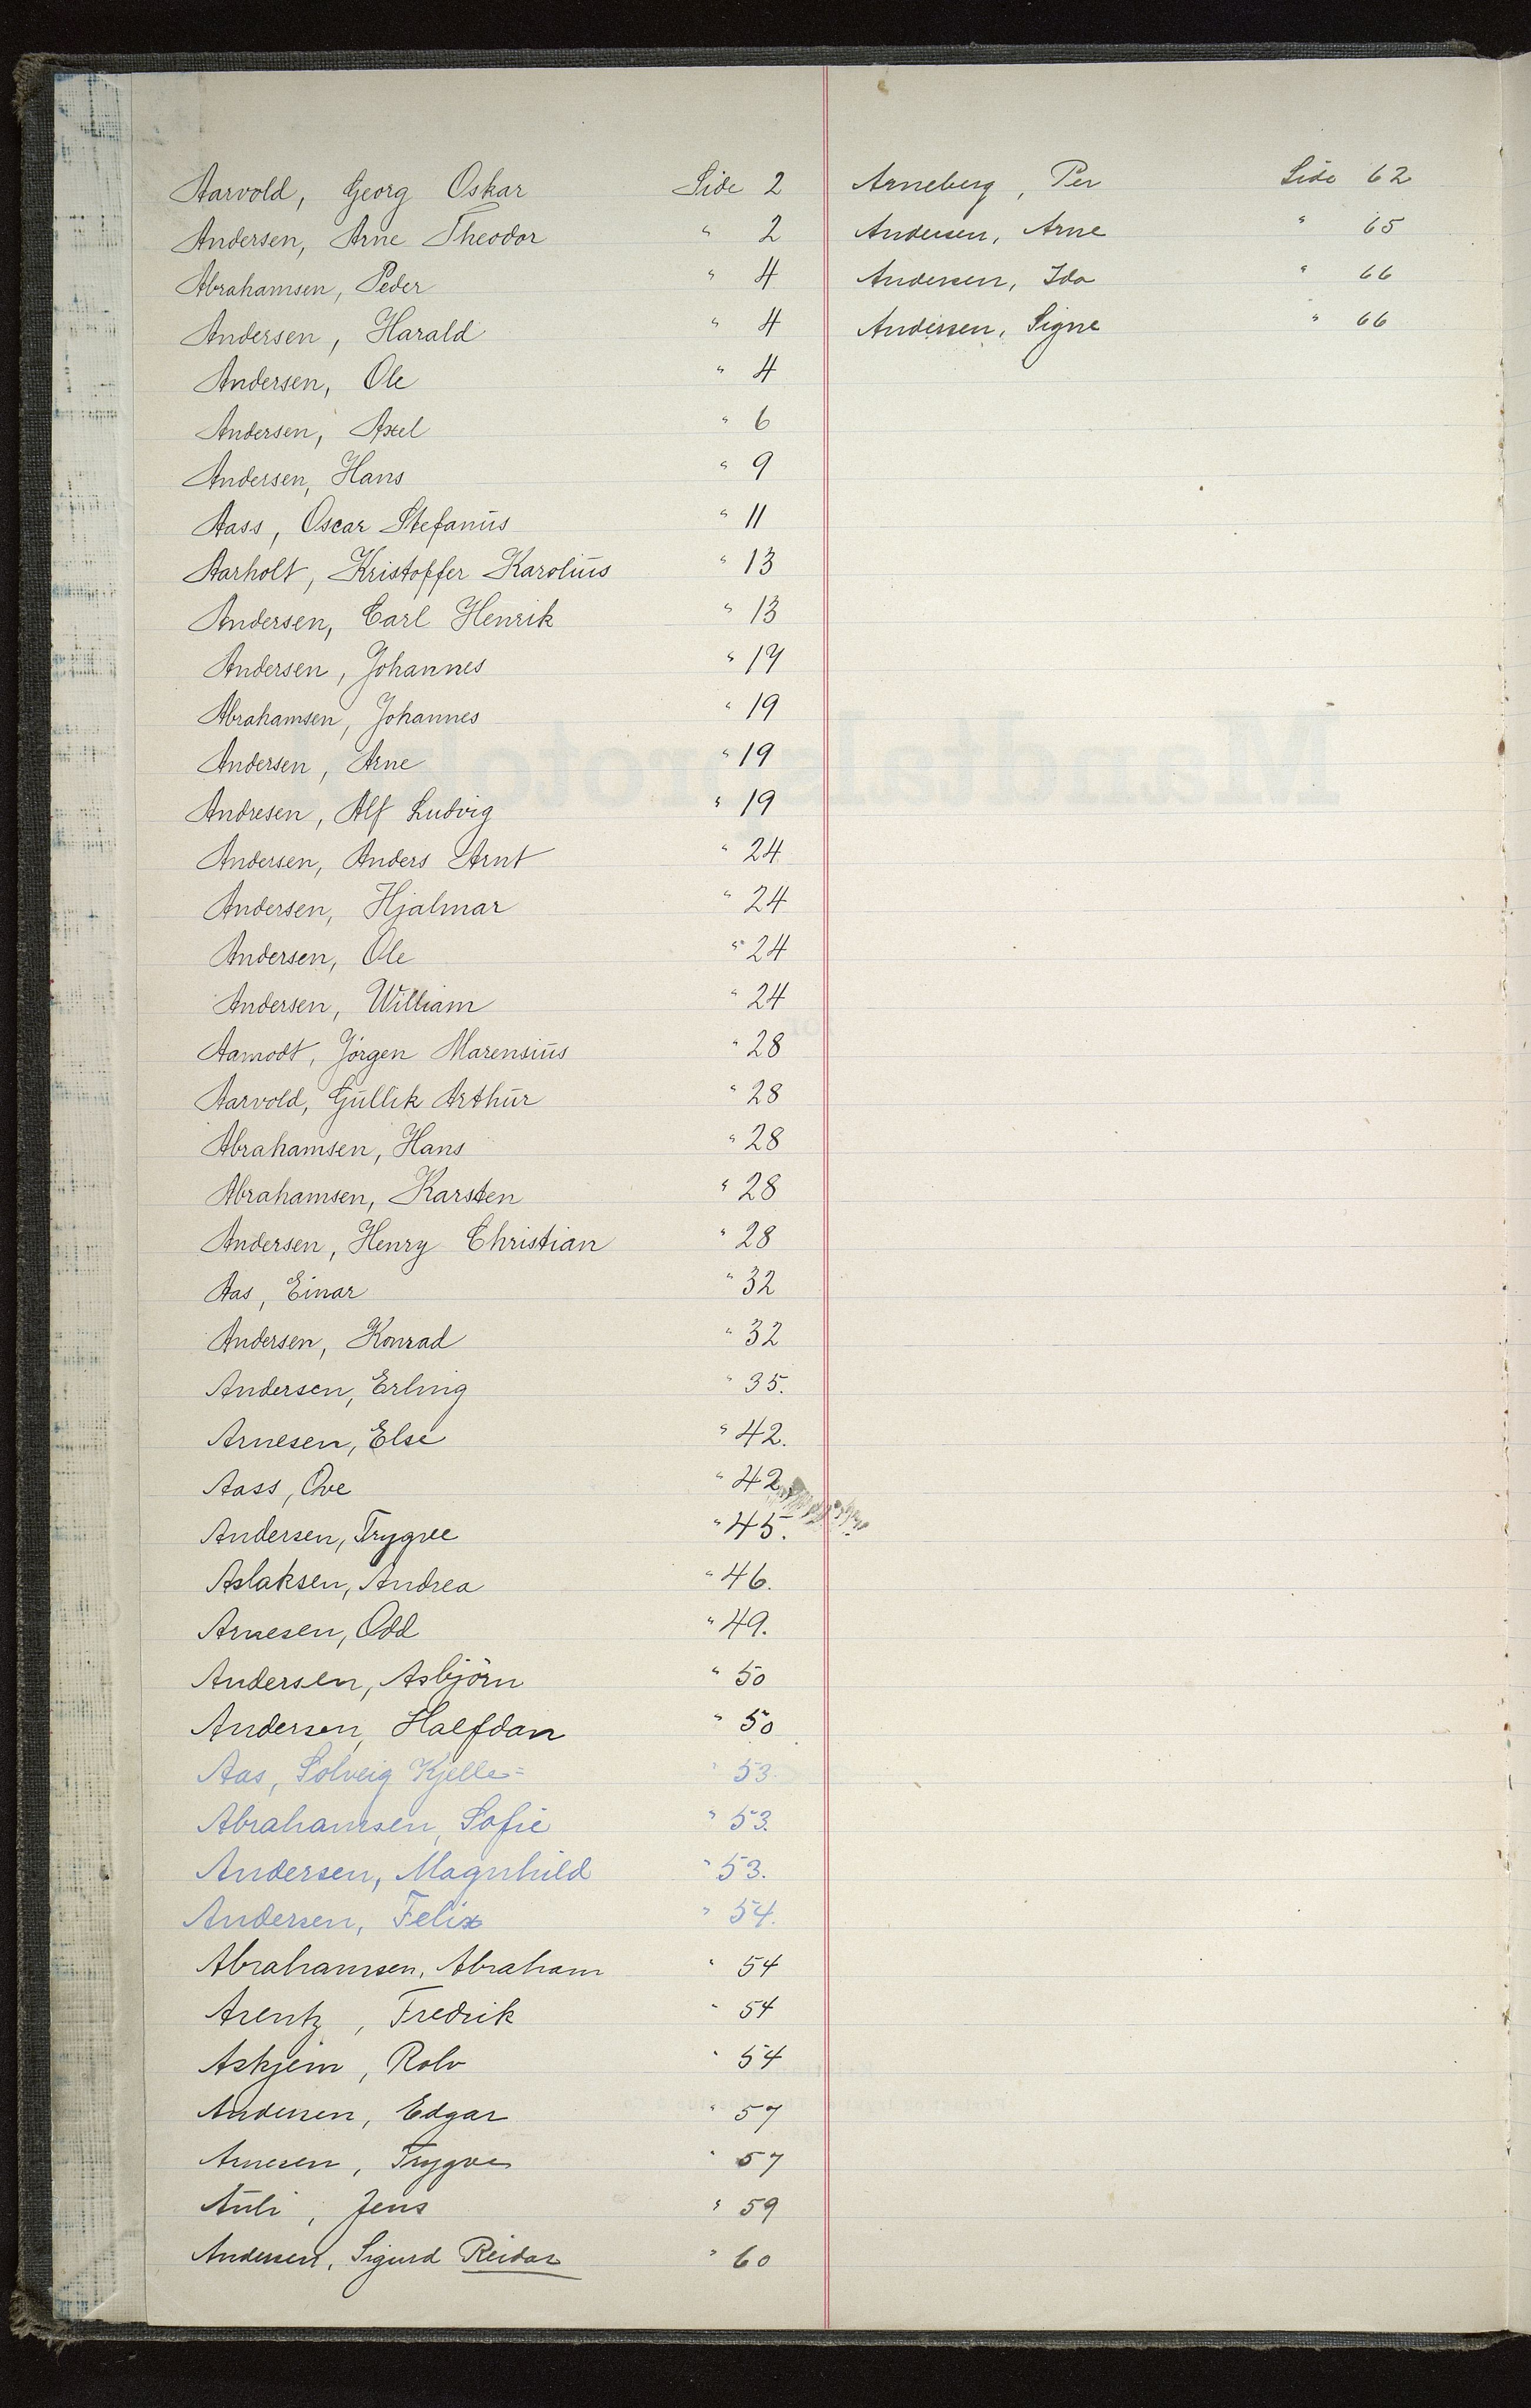 Aarvold, Georg Oskar Side 2
Andersen, Arne Theodor " 2
Abrahamsen, Peder " 4
Andersen, Harald " 4
Andersen, Ole " 4
Andersen, Axel " 6
Andersen, Hans " 9
Aass, Oscar Stefanus " 11
Aarholt, Kristoffer Karolius " 13
Andersen, Carl Henrik " 13
Andersen, Johannes " 17
Abrahamsen, Johannes " 19
Andersen, Arne " 19
Andresen, Alf Ludvig " 19
Andersen, Anders Arnt " 24
Andersen, Hjalmar " 24
Andersen, Ole " 24
Andersen, William " 24
Aamodt, Jörgen Marensius " 28
Aarvold, Gullik Arthur " 28
Abrahamsen, Hans " 28
Abrahamsen, Karsten " 28
Andersen, Henry Christian " 28
Aas, Einar " 32
Andersen, Konrad " 32
Andersen, Erling " 35.
Arnesen, Else " 42.
Aass, Ove " 42
Andersen, Trygve " 45.
Aslaksen, Andrea " 46.
Arnesen, Odd " 49.
Andersen, Asbjörn " 50
Andersen, Halfdan " 50
Aas, Solveig Kjelle= " 53.
Abrahamsen, Sofie " 53.
Andersen, Magnhild " 53.
Andersen, Felix " 54.
Abrahamsen, Abraham " 54
Arentz, Fredrik " 54
Askjem, Rolv " 54
Andersen, Edgar " 57
Arnesen, Trygve " 57
Auli, Jens " 59
Andersen, Sigurd Reidar " 60
Arneberg, Per Side 62
Andersen, Arne " 65
Andersen, Ida " 66
Andersen, Signe " 66